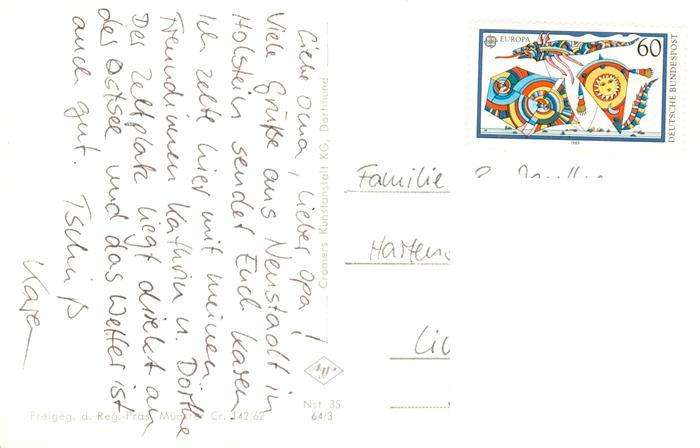 Liebe Oma, lieber Opa!
Viele Grüße aus Neustadt in
Holstein sendet Euch Karen
Ich zelte hier mit meinen
Freundinnen Kathrin u. Dörthe
Der Zeltplatz liegt direkt an
der Ostsee und das Wetter ist
auch gut. Tschüß
Karen
Cramers Kunstanstalt KG, Dortmund
Freigeg. d. Reg.-Präs. Münster Cr. 142 62
Nst 35
64/3
EUROPA
60
DEUTSCHE BUNDESPOST
1989
Familie